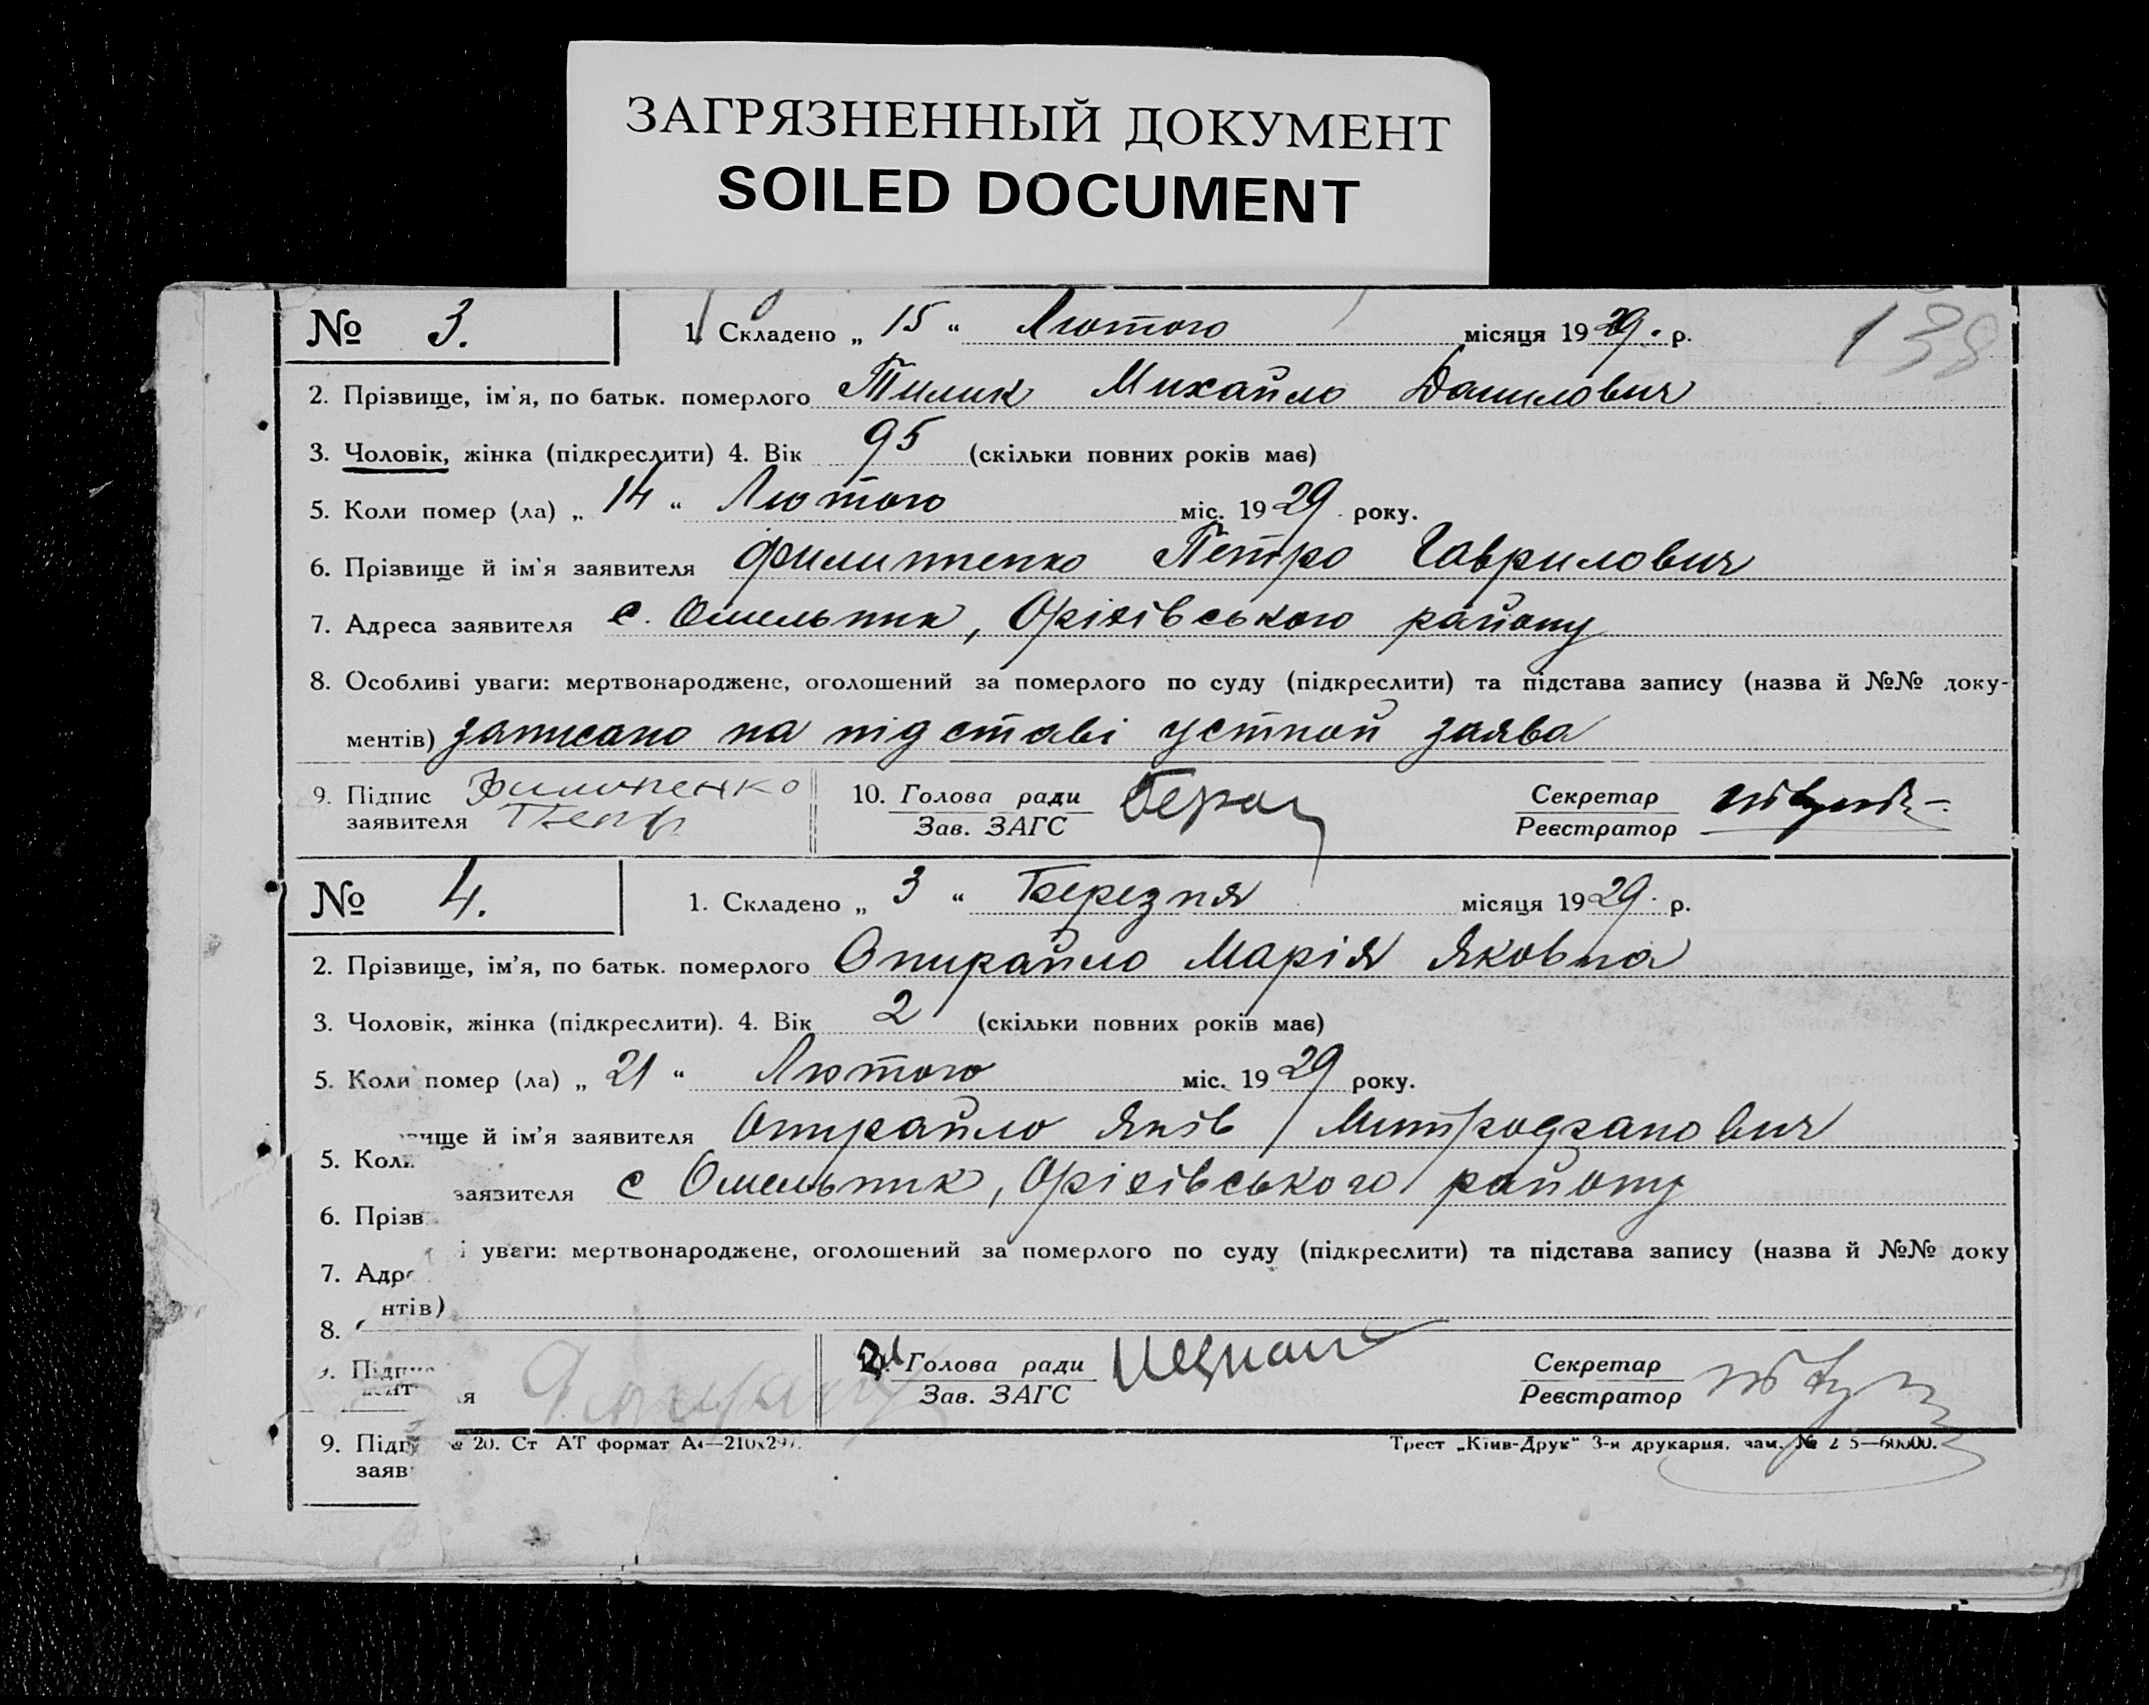 ЗАГРЯЗНЕННЫЙ ДОКУМЕНТ
SOILED DOCUMENT
138
№ 3. 1. Складено „ 15 “ Лютого місяця 1929. р.
2. Прізвище, ім'я, по батьк. померлого Тилик Михайло Данилович
3. Чоловік, жінка (підкреслити) 4. Вік 95 (скільки повних років має)
5. Коли помер (ла) „ 14 “ Лютого міс. 1929 року.
6. Прізвище й ім'я заявителя Филиппенко Петро Гаврилович
7. Адреса заявителя с. Омельник, Оріхівського району
8. Особливі уваги: мертвонароджене, оголошений за померлого по суду (підкреслити) та підстава запису (назва й №№ доку-
ментів) записано на підставі устной заява
9. Підпис заявителя Филипенко Петр 10. Голова ради Зав. ЗАГС Секретар Реєстратор
№ 4. 1. Складено „ 3 “ Березня місяця 1929. р.
2. Прізвище, ім'я, по батьк. померлого Опирайло Марія Яковна
3. Чоловік, жінка (підкреслити). 4. Вік 2 (скільки повних років має)
5. Коли помер (ла) „ 21 “ Лютого міс. 1929 року.
вище й ім'я заявителя Опирайло Яків
5. Кол
заявителя с Омельник, Оріхівського району
6. Прізв
і уваги: мертвонароджене, оголошений за померлого по суду (підкреслити) та підстава запису (назва й №№ доку
7. Адре
нтів)
8.
9. Підпис я 10. Голова ради Зав. ЗАГС Секретар Реєстратор
9. Підп № 20. Ст АТ формат А4—210х297. Трест „Київ-Друк“ 3-я друкарня, зам. №
заяв